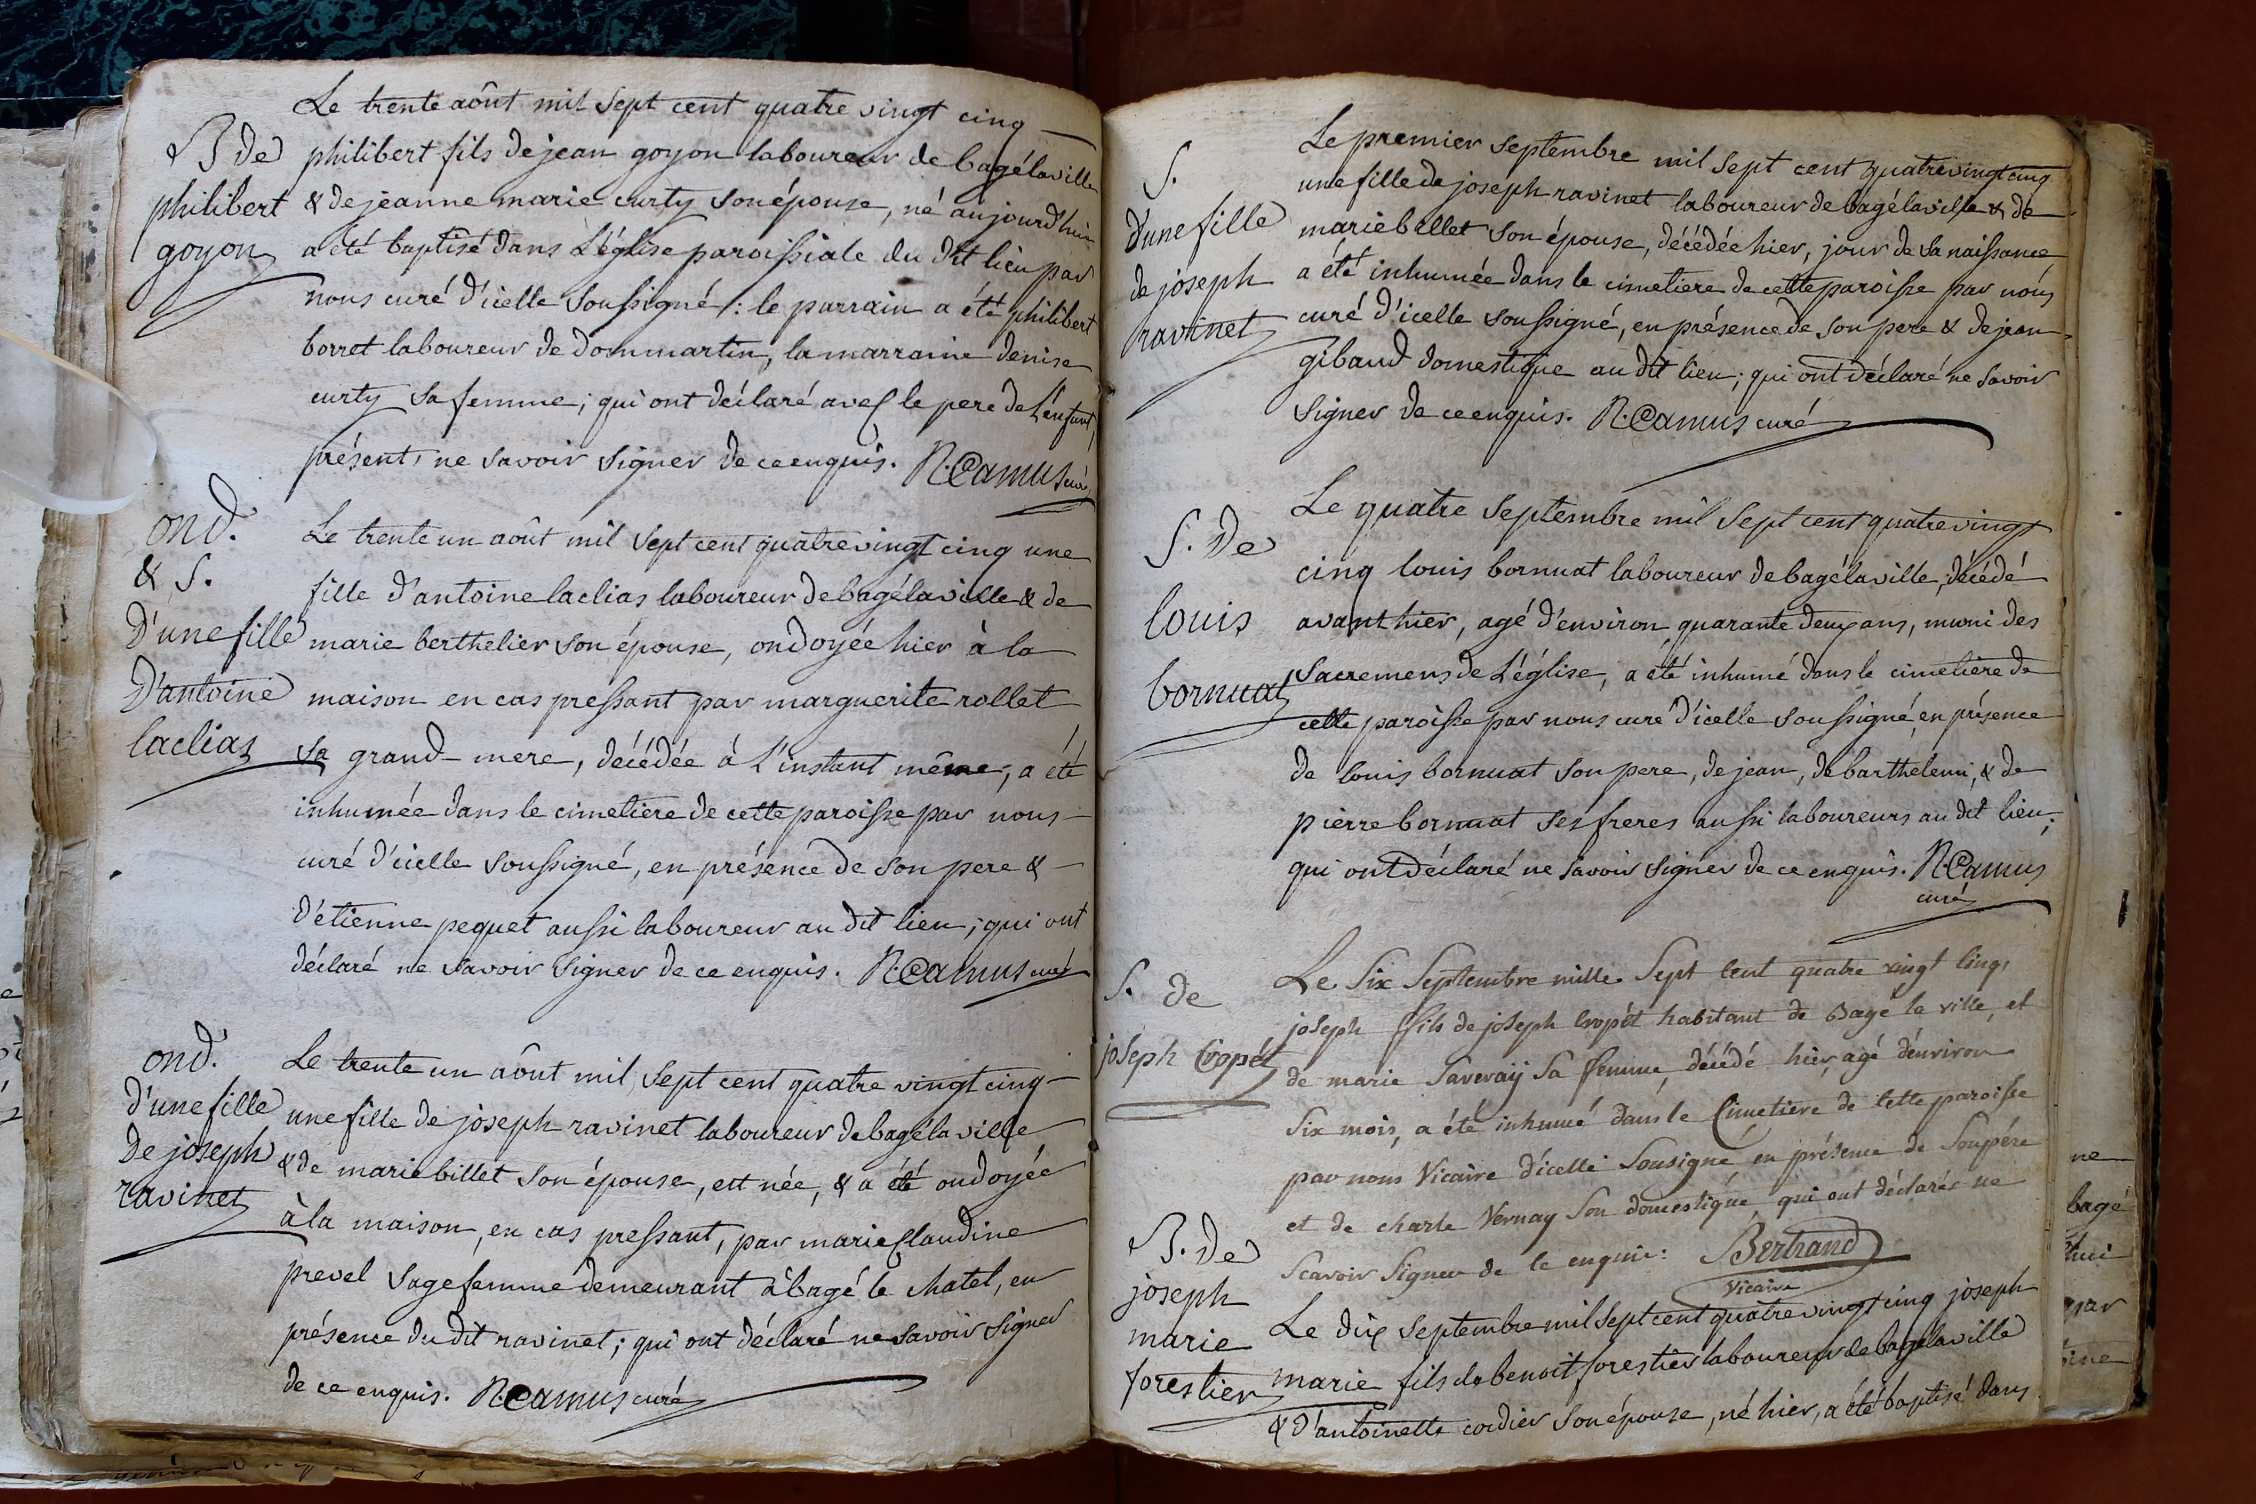 Le trente aôut mil sept cent quatre vingt cinq
B de
philibert
goyon
philibert fils de jean goyon laboureur de bagélaville
& de jeanne marie curty son épouse, né aujourd'hui
a été baptisé dans L'église paroissiale du dit lieu par
nous curé d'icelle soussigné : le parrain a été philibert
borret laboureur de dommartin, la marraine denise
curty sa femme ; qui ont déclaré avec le pere de L'enfant,
présent, ne savoir signer de ce enquis. N. Camus curé
ond.
& S.
D'une fille
D'antoine
laclias
Le trente un aôut mil sept cent quatre vingt cinq une
fille d'antoine laclias laboureur de bagélaville & de
marie berthelier son épouse, ondoyée hier à la
maison en cas pressant par marguerite rollet
sa grand-mere, décédée à L'instant même, a été
inhumée dans le cimetiere de cette paroisse par nous
curé d'icelle soussigné, en présence de son pere &
d'étienne pequet aussi laboureur au dit lieu ; qui ont
déclaré ne savoir signer de ce enquis. N. Camus curé
ond.
d'une fille
De joseph
ravinet
Le trente un aôut mil sept cent quatre vingt cinq
une fille de joseph ravinet laboureur de bagélaville
& de marie billet son épouse, est née, & a été ondoyée
à la maison, en cas pressant, par marie Claudine
prevel sage femme demeurant à bagé le chatel, en
présence du dit ravinet ; qui ont déclaré ne savoir signer
de ce enquis. N. Camus curé
S.
d'une fille
de joseph
ravinet
Le premier septembre mil sept cent quatre vingt cinq
une fille de joseph ravinet laboureur de bagélaville & de
marie billet son épouse, décédée hier, jour de sa naissance,
a été inhumée dans le cimetiere de cette paroisse par nous
curé d'icelle soussigné, en présence de son pere & de jean
gibaud domestique au dit lieu ; qui ont déclaré ne savoir
signer de ce enquis. N. Camus curé
S. De
louis
bornuat
Le quatre septembre mil sept cent quatre vingt
cinq louis bornuat laboureur de bagélaville, décédé
avant hier, agé d'environ quarante deux ans, muni des
sacremens de L'église, a été inhumé dans le cimetiere de
cette paroisse par nous curé d'icelle soussigné, en présence
de louis bornuat son pere, de jean, de barthelemi, & de
pierre bornuat ses freres aussi laboureurs au dit lieu ;
qui ont déclaré ne savoir signer de ce enquis. N. Camus
curé
S. de
joseph Cropét
Le Six Septembre mille Sept Cent quatre vingt Cinq,
joseph fils de joseph Cropét habitant de Bagé la ville, et
de marie Saveraÿ Sa femme, décédé hier, agé d'environ
Six mois, a été inhumé dans le Cimetiere de Cette paroisse
par nous Vicaire d'icelle Sousigné, en présence de Son pére
et de charle Vernay Son domestique, qui ont déclarés ne
Scavoir Signer de Ce enquis : Bertrand
Vicaire
B. De
joseph
marie
forestier
Le dix septembre mil sept cent quatre vingt cinq joseph
marie fils de benoit forestier laboureur de bagélaville
& d'antoinette cordier son épouse, né hier, a été baptisé dans
ne
bagé
par